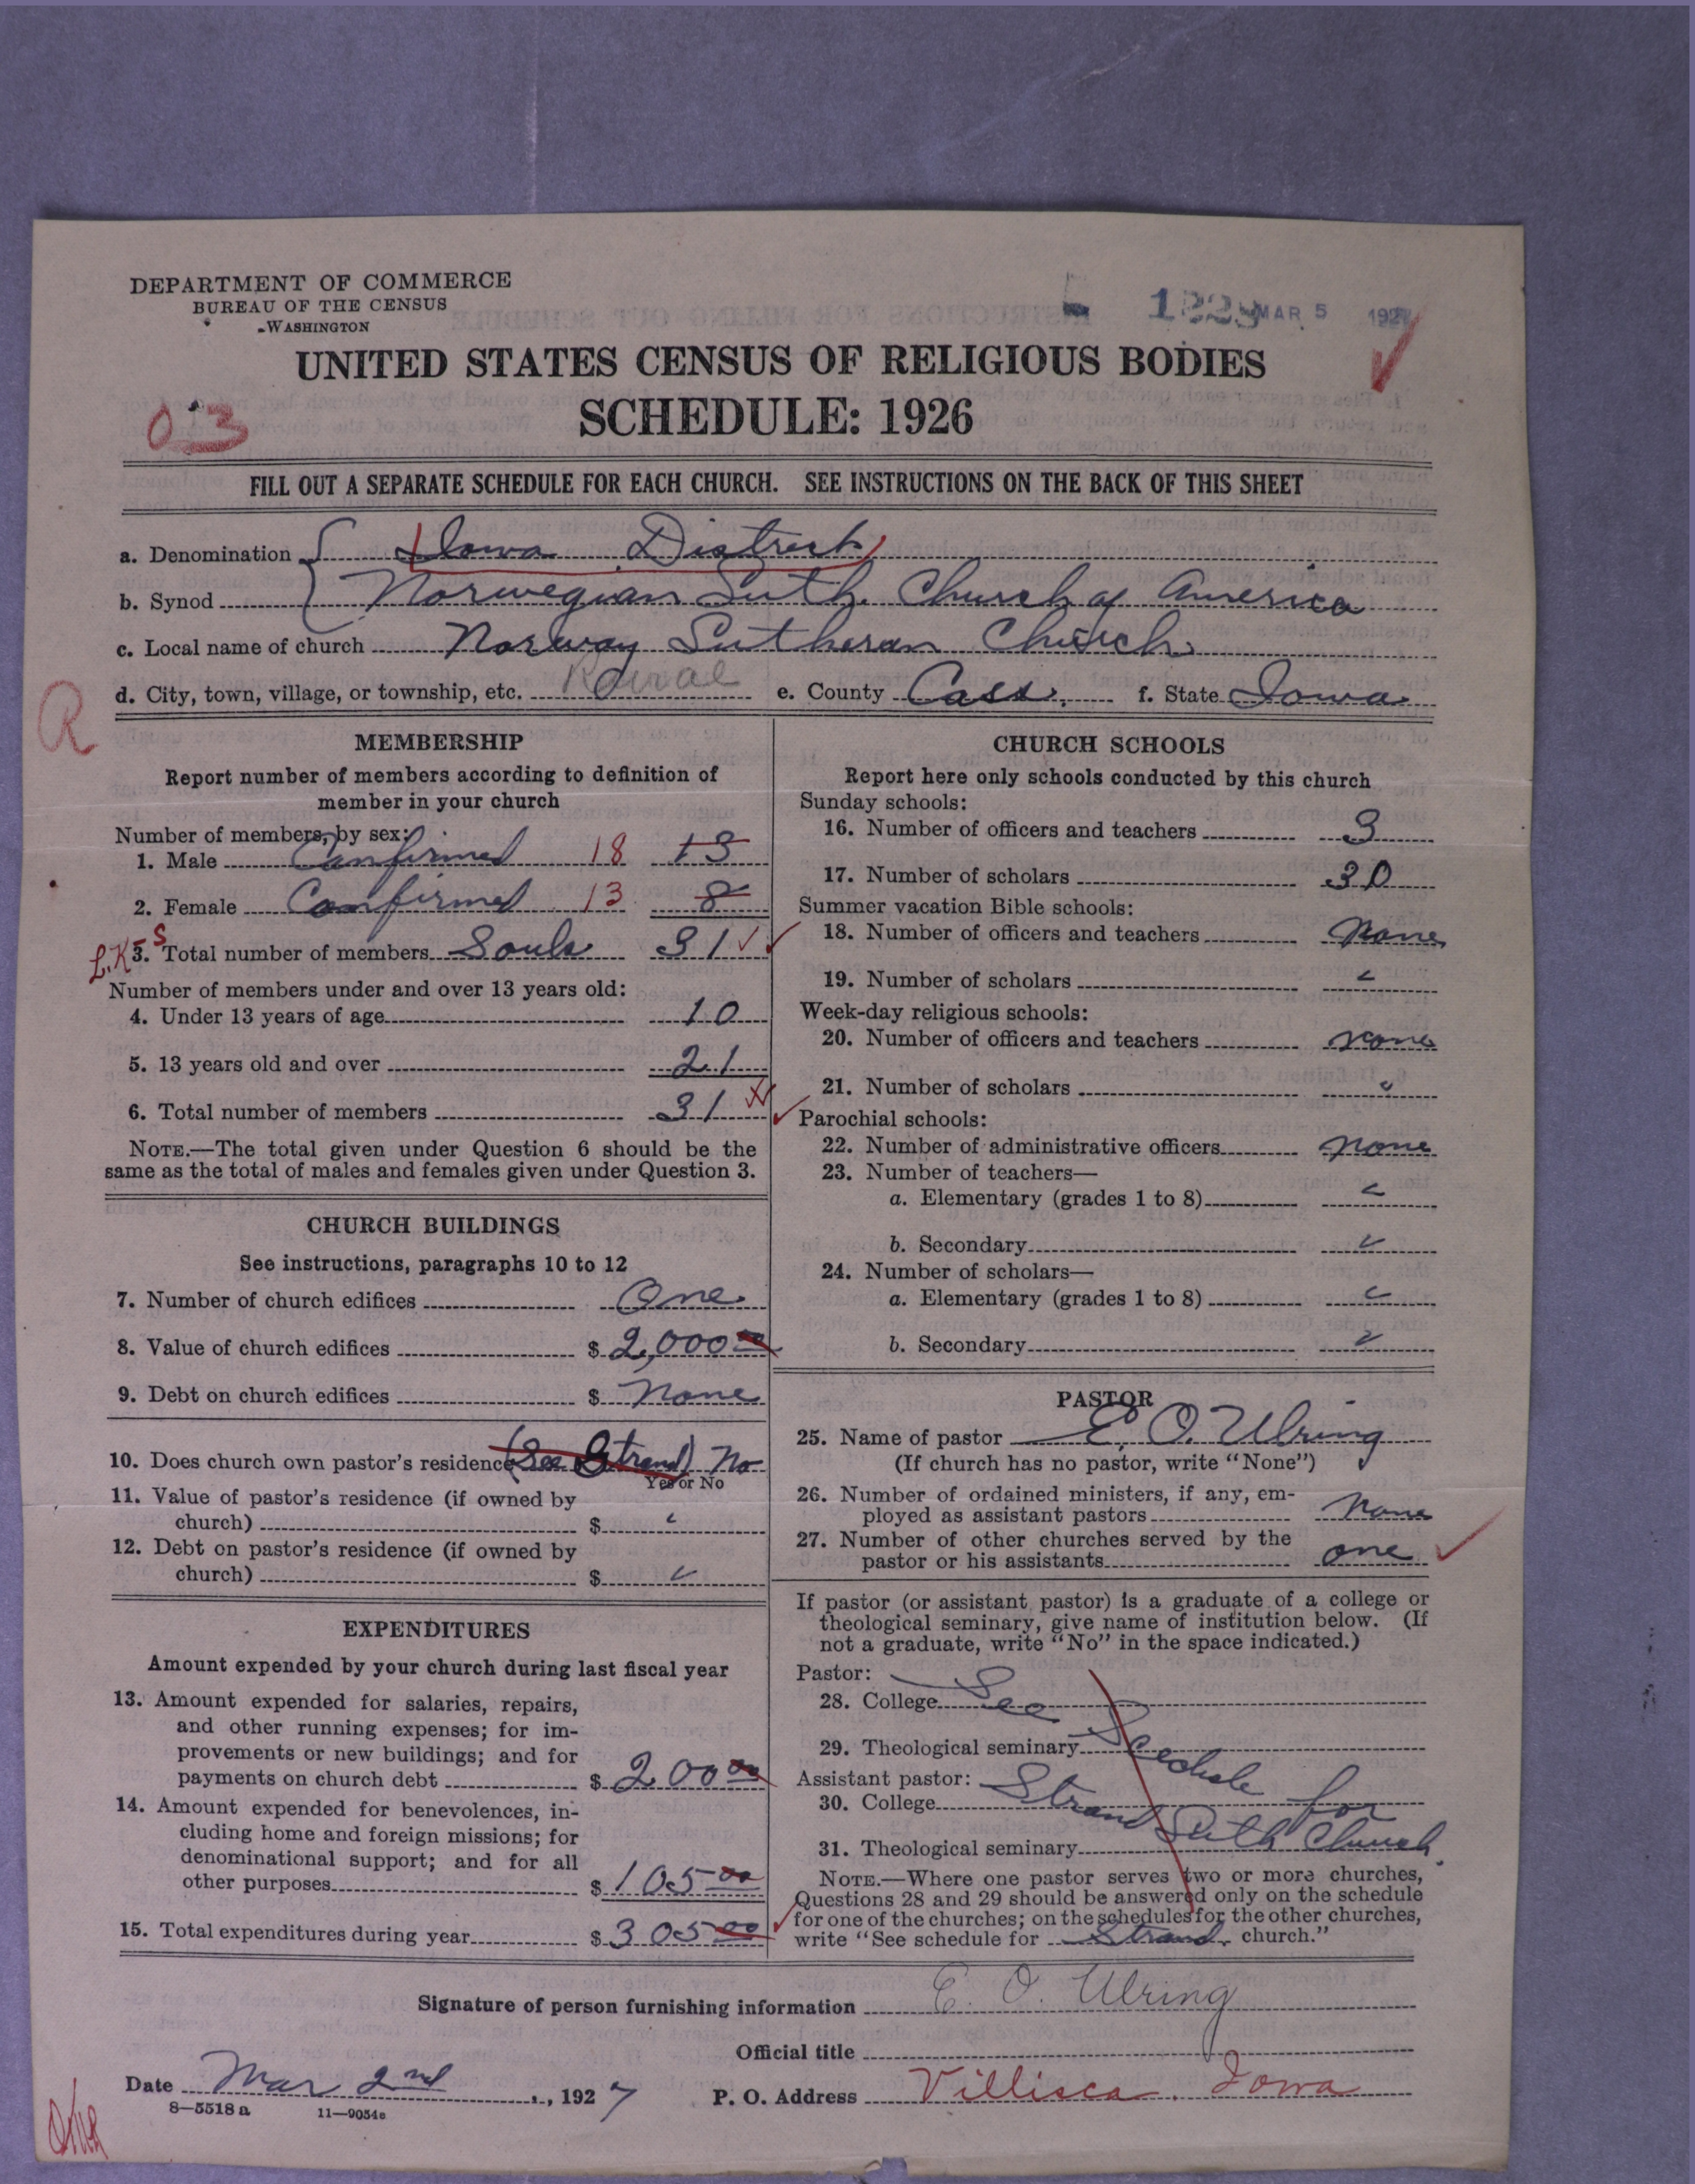 DEPARTMENT OF COMMERCE
BUREAU OF THE CENSUS
WASHINGTON
MAR 5 1927
UNITED STATES CENSUS OF RELIGIOUS BODIES
SCHEDULE: 1926
03
FILL OUT A SEPARATE SCHEDULE FOR EACH CHURCH. SEE INSTRUCTIONS ON THE BACK OF THIS SHEET
a. Denomination Iowa District
b. Synod Norwegian Luth. Church of America
c. Local name of church Norway Lutheran Church
d. City, town, village, or township, etc. Rural e. County Cass. f. State Iowa
R
MEMBERSHIP
Report number of members according to definition of
member in your church
Number of members, by sex:
1. Male Confirmed 18 13
2. Female Confirmed 13 8
3. Total number of members Souls 31
Number of members under and over 13 years old:
4. Under 13 years of age 10
5. 13 years old and over 21
6. Total number of members 31
NOTE.—The total given under Question 6 should be the
same as the total of males and females given under Question 3.
CHURCH BUILDINGS
See instructions, paragraphs 10 to 12
7. Number of church edifices One
8. Value of church edifices $ 2,000 00
9. Debt on church edifices $ None
10. Does church own pastor's residence (See Strand) No
Yes or No
11. Value of pastor's residence (if owned by
church) $ "
12. Debt on pastor's residence (if owned by
church) $ "
EXPENDITURES
Amount expended by your church during last fiscal year
13. Amount expended for salaries, repairs,
and other running expenses; for im-
provements or new buildings; and for
payments on church debt $ 200 00
14. Amount expended for benevolences, in-
cluding home and foreign missions; for
denominational support; and for all
other purposes $ 105 00
15. Total expenditures during year $ 305 00
CHURCH SCHOOLS
Report here only schools conducted by this church
Sunday schools:
16. Number of officers and teachers 3
17. Number of scholars 30
Summer vacation Bible schools:
18. Number of officers and teachers None
19. Number of scholars "
Week-day religious schools:
20. Number of officers and teachers none
21. Number of scholars "
Parochial schools:
22. Number of administrative officers none
23. Number of teachers—
a. Elementary (grades 1 to 8) "
b. Secondary "
24. Number of scholars—
a. Elementary (grades 1 to 8) "
b. Secondary "
PASTOR
25. Name of pastor E. O. Ulring
(If church has no pastor, write "None")
26. Number of ordained ministers, if any, em-
ployed as assistant pastors None
27. Number of other churches served by the
pastor or his assistants one
If pastor (or assistant pastor) is a graduate of a college or
theological seminary, give name of institution below. (If
not a graduate, write "No" in the space indicated.)
Pastor:
28. College See
29. Theological seminary
Assistant pastor: Strand for
30. College
31. Theological seminary Luth Church
NOTE.—Where one pastor serves two or more churches,
Questions 28 and 29 should be answered only on the schedule
for one of the churches; on the schedules for the other churches,
write "See schedule for Strand church."
Signature of person furnishing information E. O. Ulring
Official title
Date Mar 2nd, 1927 P. O. Address Villisca, Iowa
8—5518 a 11—9054c